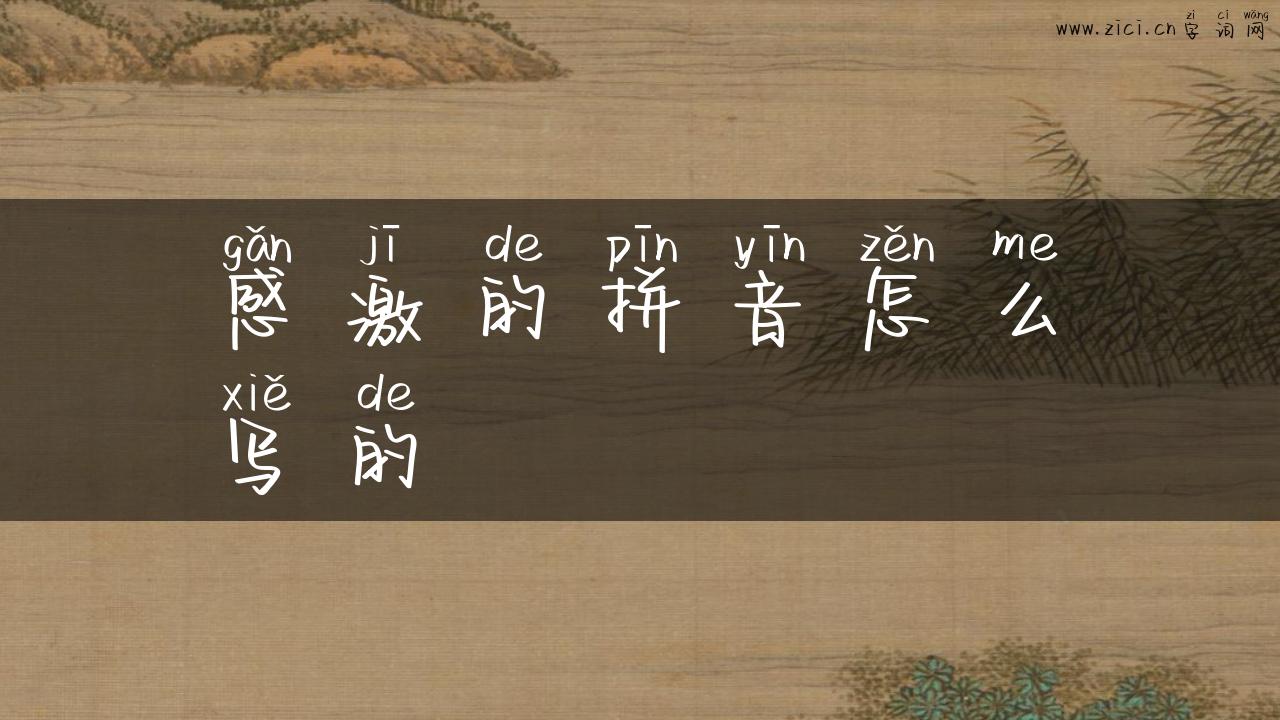 zì cí wǎng
www.zici.cn 字 词 网
gǎn jī de pīn yīn zěn me
感 激 的 拼 音 怎 么
xiě de
写 的